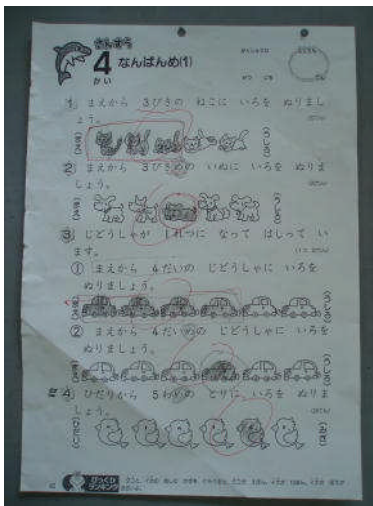 さんすう
4 なんばんめ(1)
かい
1 まえから 3びきの ねこに いろを ぬりまし
ょう。
(まえ) (うしろ)
2 まえから 3びきめの いぬに いろを ぬりま
しょう。
(まえ) (うしろ)
3 じどうしゃが 1れつに なって はしって い
ます。
① まえから 4だいの じどうしゃに いろを
ぬりましょう。
(まえ) (うしろ)
② まえから 4だいめの じどうしゃに いろを
ぬりましょう。
(まえ) (うしろ)
4 ひだりから 5わめの とりに いろを ぬりま
しょう。
(ひだり) (みぎ)
びっくり
ランキング